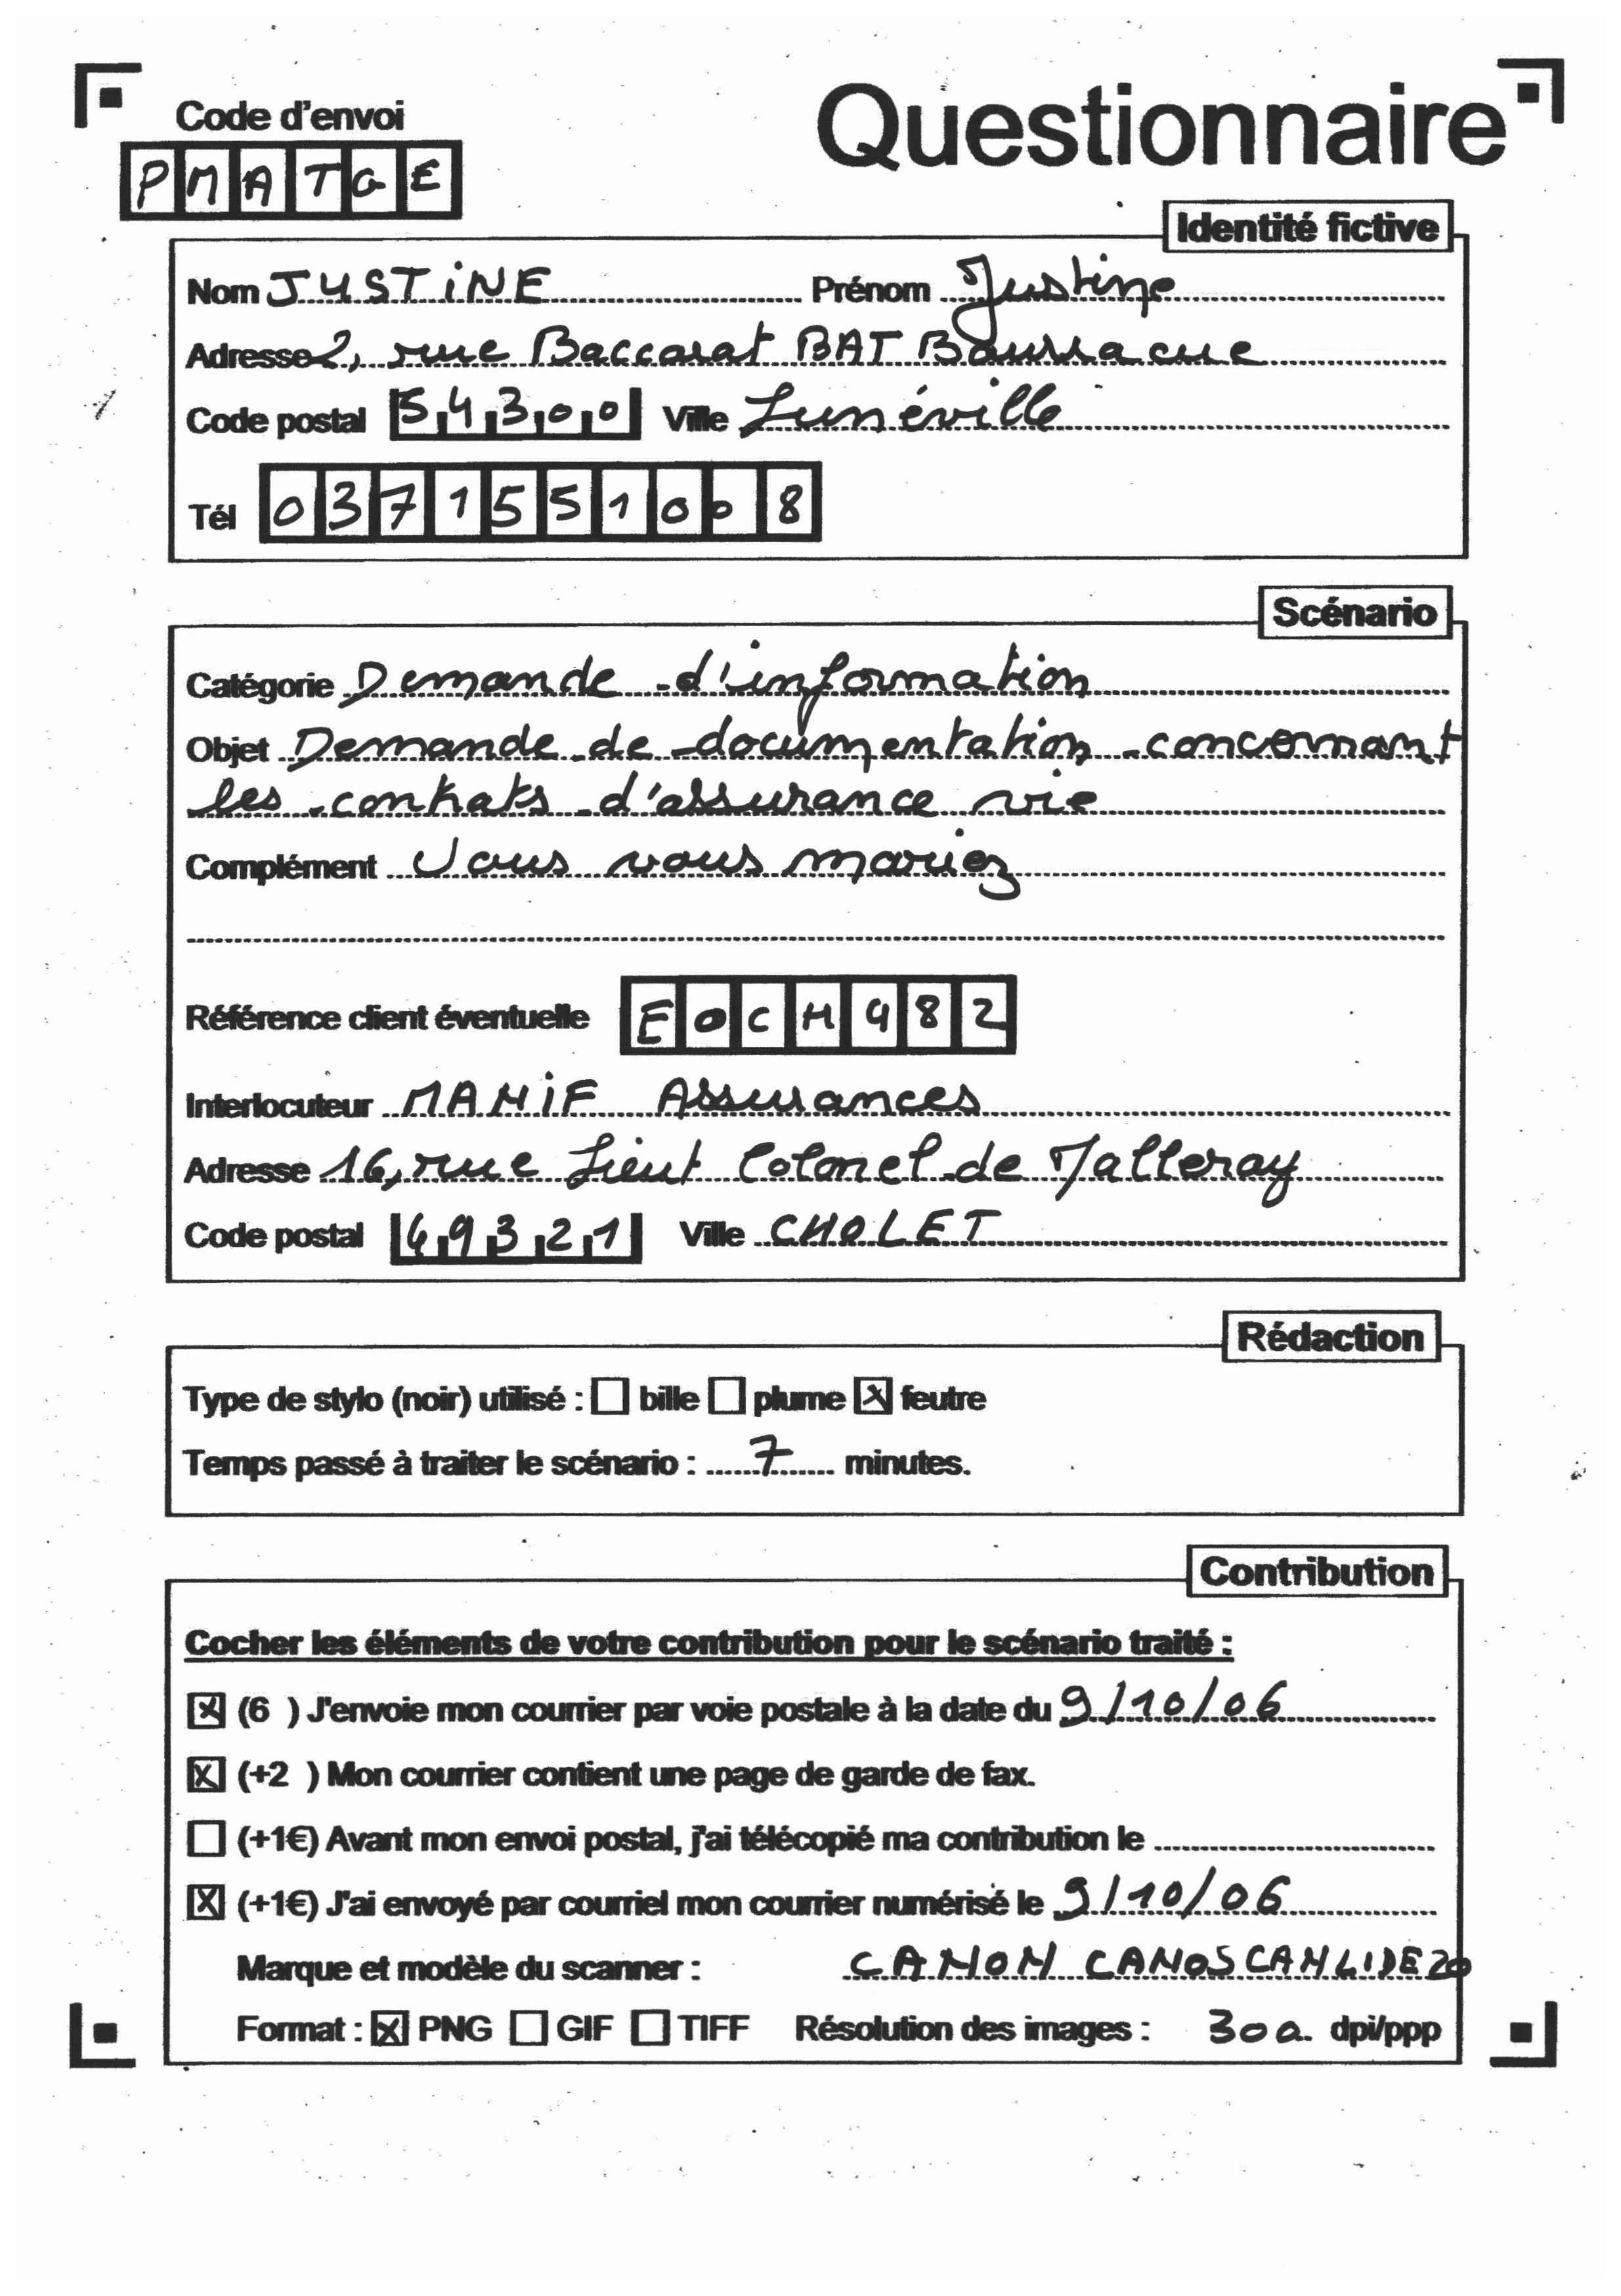 Code d'envoi
Questionnaire
PMATGE
Identité fictive
Nom JUSTINE Prénom Justine
Adresse 2, rue Baccarat BAT
Code postal 54300 Ville Lunéville
Tél 0371551008
Scénario
Catégorie Demande d'information
Objet Demande de documentation concernant
les contrats d'assurance vie
Complément Vous vous mariez
Référence client éventuelle EOCH982
Interlocuteur MAHIF Assurances
Adresse 16, rue Lieut Colonel de Malleray
Code postal 49321 Ville CHOLET
Rédaction
Type de stylo (noir) utilisé : bille plume feutre
Temps passé à traiter le scénario : 7 minutes.
Contribution
Cocher les éléments de votre contribution pour le scénario traité :
(6 ) J'envoie mon courrier par voie postale à la date du 9/10/06
(+2 ) Mon courrier contient une page de garde de fax.
(+1€) Avant mon envoi postal, j'ai télécopié ma contribution le
(+1€) J'ai envoyé par courriel mon courrier numérisé le 9/10/06
Marque et modèle du scanner : CANON CANOSCANLIDE20
Format : PNG GIF TIFF Résolution des images : 300 dpi/ppp